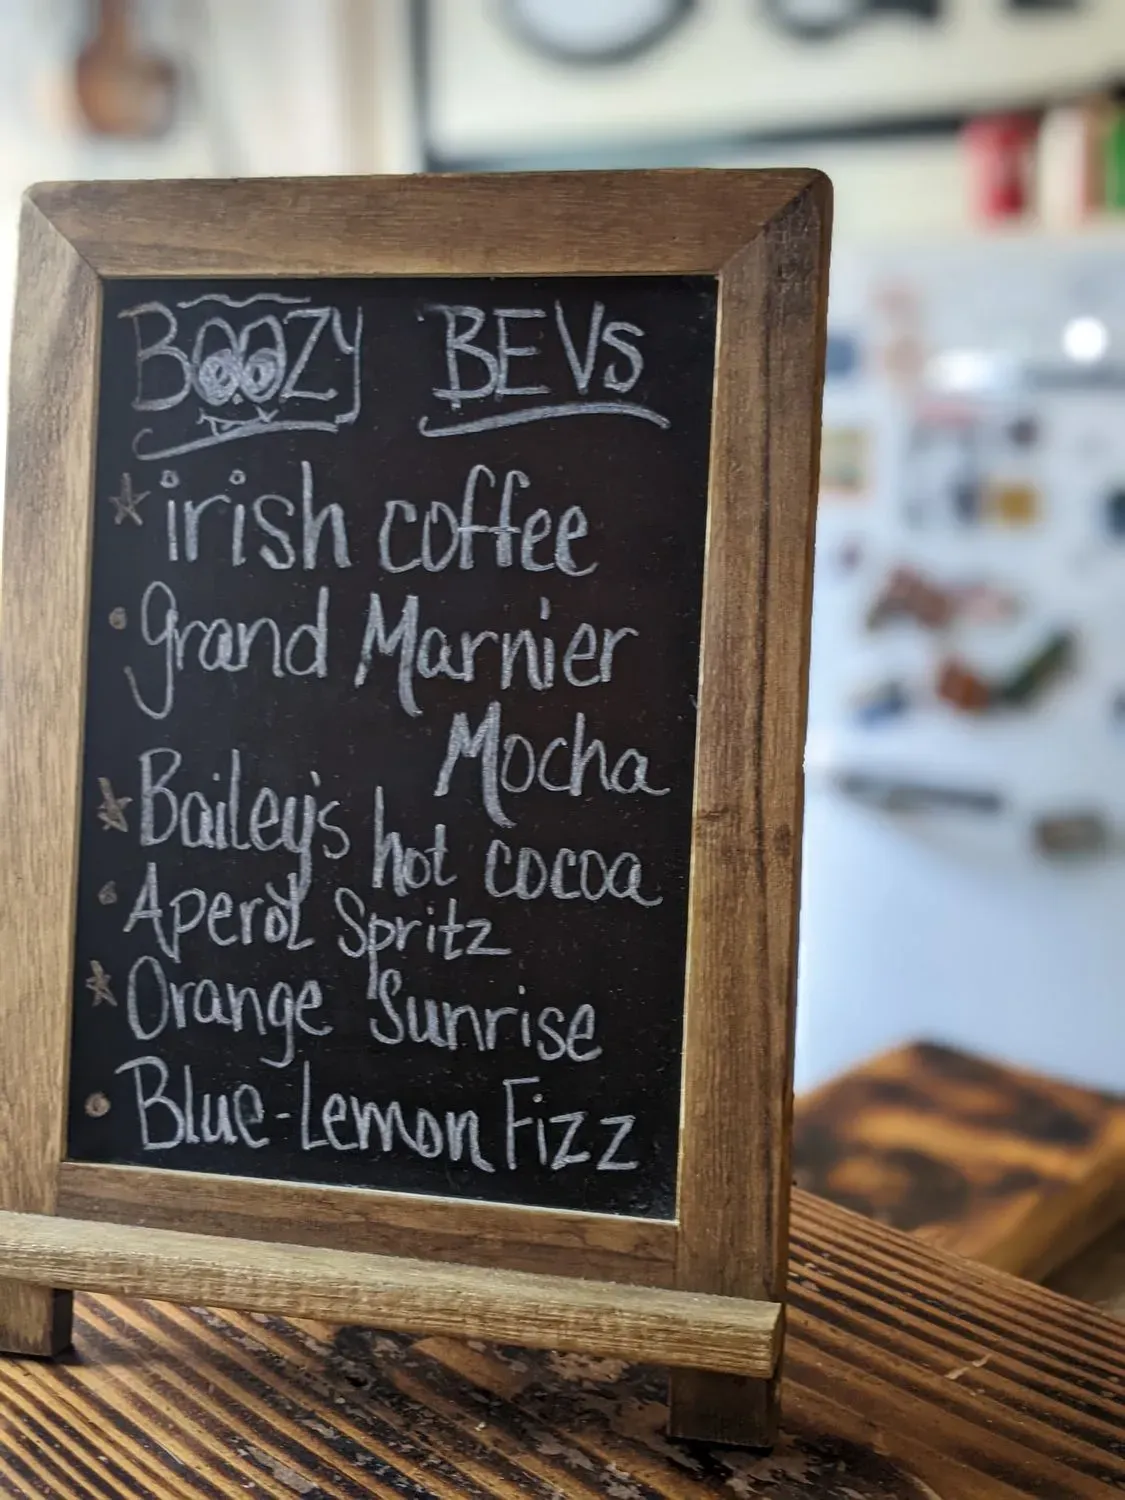 BOOZY BEVS
irish coffee
grand Marnier
Mocha
Bailey's hot cocoa
Aperol Spritz
Orange Sunrise
Blue-Lemon Fizz